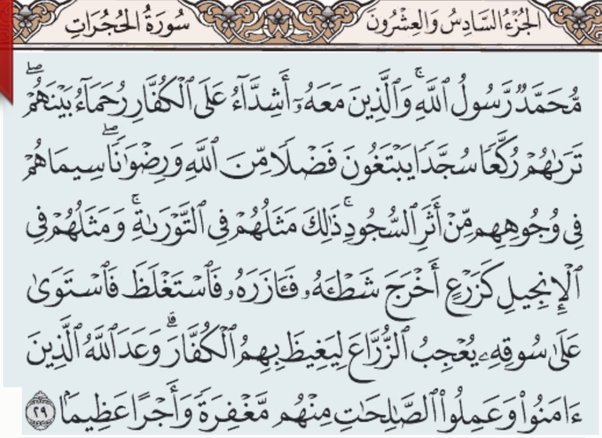 الجُزْءُ السَّادِسُ وَالعِشْرُونَ سُورَةُ الحُجُرَاتِ
مُّحَمَّدٌ رَّسُولُ ٱللَّهِۚ وَٱلَّذِينَ مَعَهُۥٓ أَشِدَّآءُ عَلَى ٱلْكُفَّارِ رُحَمَآءُ بَيْنَهُمْۖ
تَرَىٰهُمْ رُكَّعًا سُجَّدًا يَبْتَغُونَ فَضْلًا مِّنَ ٱللَّهِ وَرِضْوَٰنًاۖ سِيمَاهُمْ
فِى وُجُوهِهِم مِّنْ أَثَرِ ٱلسُّجُودِۚ ذَٰلِكَ مَثَلُهُمْ فِى ٱلتَّوْرَىٰةِۚ وَمَثَلُهُمْ فِى
ٱلْإِنجِيلِ كَزَرْعٍ أَخْرَجَ شَطْـَٔهُۥ فَـَٔازَرَهُۥ فَٱسْتَغْلَظَ فَٱسْتَوَىٰ
عَلَىٰ سُوقِهِۦ يُعْجِبُ ٱلزُّرَّاعَ لِيَغِيظَ بِهِمُ ٱلْكُفَّارَۗ وَعَدَ ٱللَّهُ ٱلَّذِينَ
ءَامَنُوا۟ وَعَمِلُوا۟ ٱلصَّٰلِحَٰتِ مِنْهُم مَّغْفِرَةً وَأَجْرًا عَظِيمًۢا ٢٩